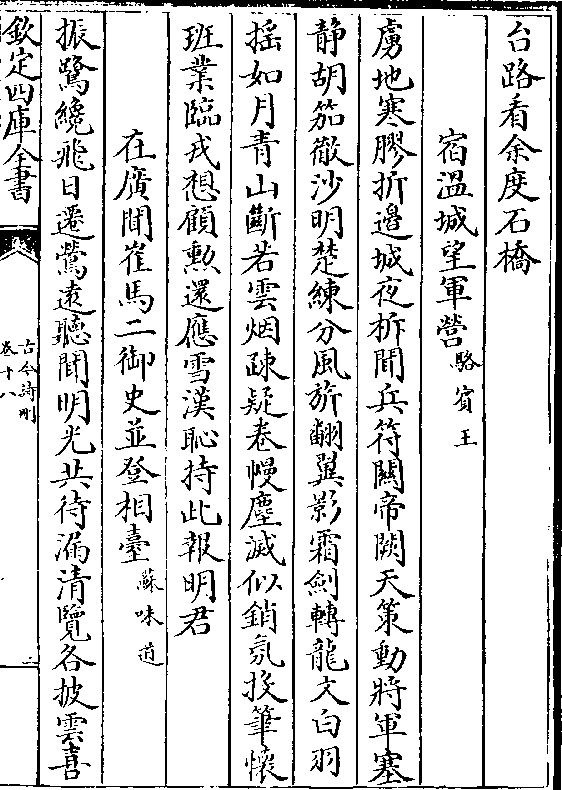 台路看余度石橋
宿温城望軍營駱賓王
虜地寒膠折邉城夜柝聞兵符闗帝闕天策動將軍塞
静胡笳徹沙明楚練分風旂翻翼影霜劍轉龍文白羽
揺如月青山斷若雲烟疎疑卷幔塵滅似銷氛投筆懐
班業臨戎想顧勲還應雪漢恥持此報明君
在廣聞崔馬二御史並登相臺蘇味道
振鷺纔飛日遷鶯逺聽聞明光共待漏清覽各披雲喜
欽定四庫全書
古今詩刪
卷十八
二